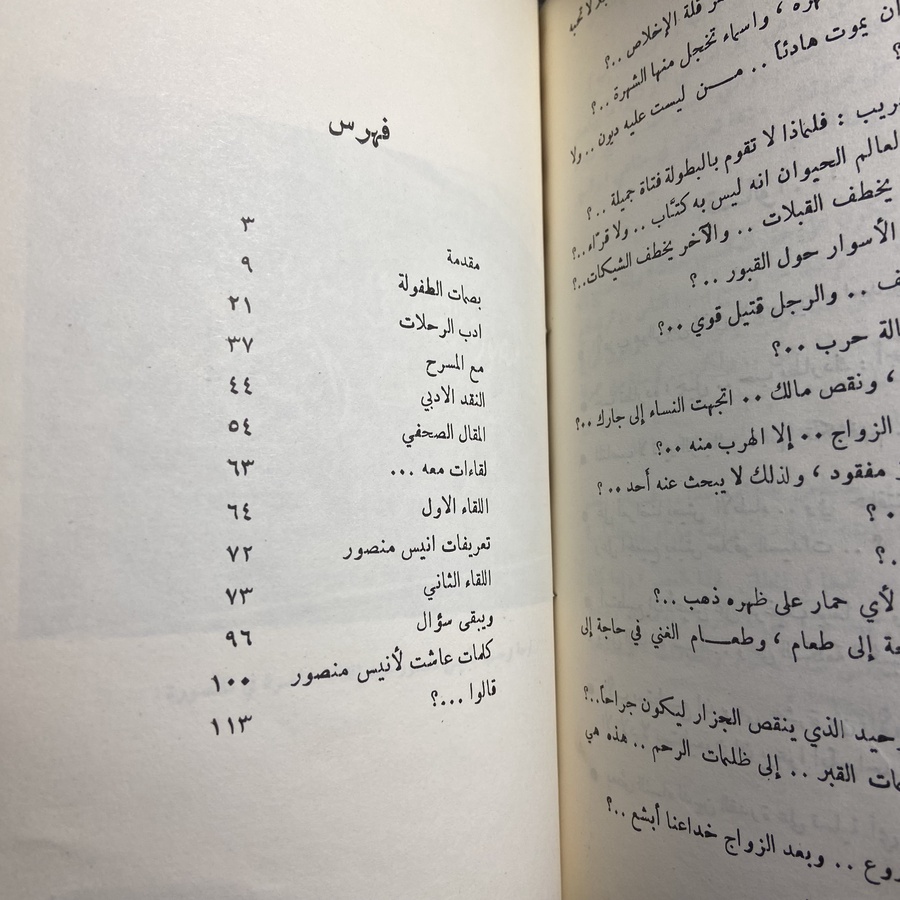 قلة الإخلاص ..؟
، واسماء تخجل منها الشهرة ..؟
ان يموت هادئاً .. مـــن ليست عليه ديون .. ولا
؟
ريب : فلماذا لا تقوم بالبطولة فتاة جميلة ..؟
لعالم الحيوان انه ليس به كتّاب .. ولا قرّاء ..؟
يخطف القبلات .. والآخر يخطف الشيكات ..؟
الأسوار حول القبور ..؟
ف .. والرجل قتيل قوي ..؟
الة حرب ..؟
، ونقص مالك .. اتجهت النساء إلى جارك ..؟
الزواج .. إلا الهرب منه ..؟
مفقود ، ولذلك لا يبحث عنه أحد ..؟
. ؟
.؟
لأي حمار على ظهره ذهب ..؟
ة إلى طعام ، وطعــــام الغني في حاجة إلى
وحيد الذي ينقص الجزار ليكون جراحاً..؟
مات القبر .. إلى ظلمات الرحم .. هذه هي
روع .. وبعد الزواج خداعنا أبشع ..؟
فهرس
مقدمة ٣
بصمات الطفولة ٩
ادب الرحلات ٢١
مع المسرح ٣٧
النقد الادبي ٤٤
المقال الصحفي ٥٤
لقاءات معه ... ٦٣
اللقاء الاول ٦٤
تعريفات انيس منصور ٧٢
اللقاء الثاني ٧٣
ويبقى سؤال ٩٦
كلمات عاشت لأنيس منصور ١٠٠
قالوا ...؟ ١١٣